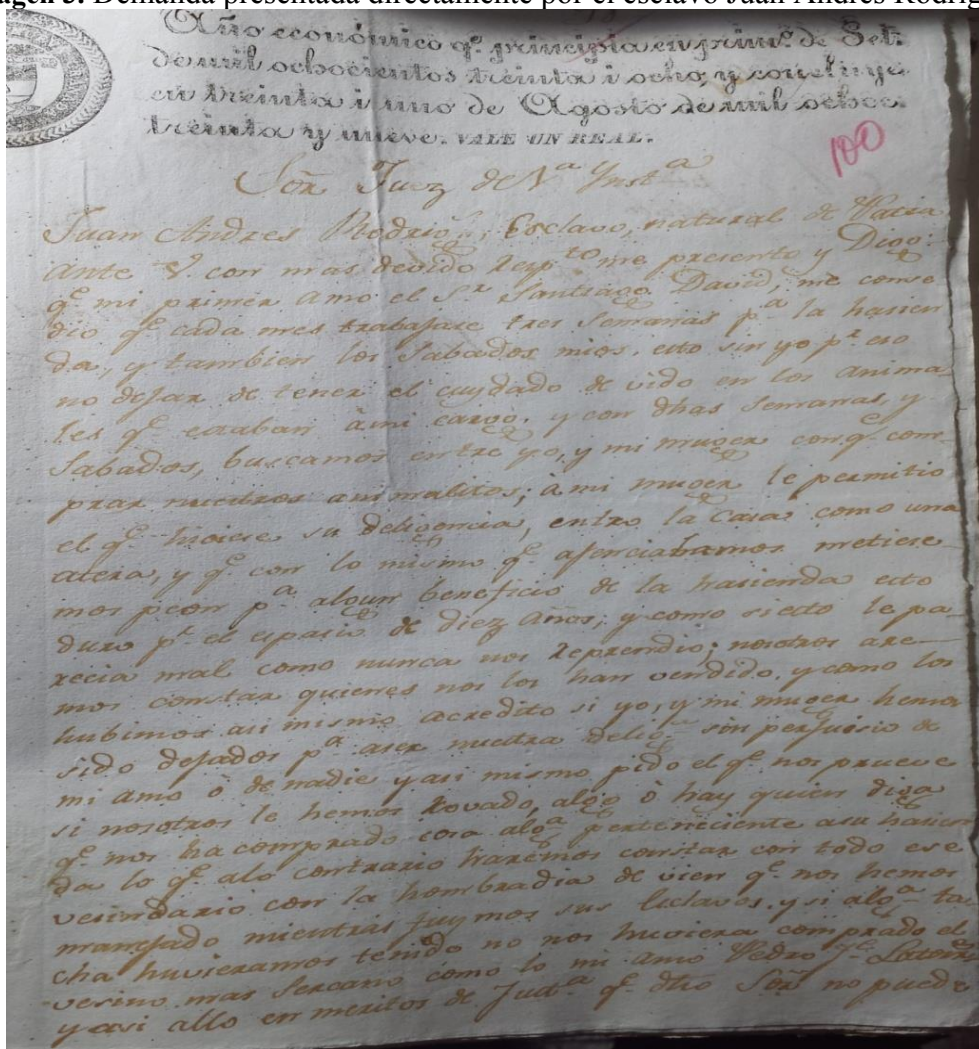 agen 3. Demanda presentada directamente por el esclavo Juan Andrés Rodríg
Año económico qᵉ principia en primº de Set.
de mil ochocientos treinta i ocho, y concluye
en treinta i uno de Agosto de mil ochoc.
treinta y nueve. VALE UN REAL.
100
Soñ Juez de 1ª Ynstª
Juan Andres Rodrigˢ, Esclavo, natural de
ante V. con mas devido respᵗᵒ me presento y Digo:
qᵉ mi primer amo el Sʳ Santiago David, me conse
dio qᵉ cada mes trabajare tres Semanas pᵃ la hasien
da, y tambien los Sabados mios, esto sin yo pʳ eso
no dejar de tener el cuydado de vido en los anima
les qᵉ estaban à mi cargo, y con dhas Semanas, y
Sabados, buscamos entre yo, y mi muger con qᵉ com
prar nuestros animalitos; à mi muger le permitio
el qᵉ hiciese su deligencia, entro la Casa como una
atera, y qᵉ con lo mismo qᵉ afenciabamos metiese
mos peon pᵃ algun beneficio de la hasienda esto
duro pʳ el espasio de diez Años; y como si esto le pa
recia mal como nunca nos reprendio; nosotros are
mos constar quienes nos los han vendido, y como los
hubimos asi mismo acredito si yo, y mi muger hemos
sido dejados pᵃ aser nuestra delig. sin perjuisio de
mi amo ò de nadie y asi mismo pido el qᵉ nos prueve
si nosotros le hemos Rovado, algo ò hay quien diga
qᵉ nos ha comprado cosa algᵃ perteneciente a su hasien
da lo qᵉ alo contrario haremos constar con todo ese
vesindario con la hombradia de vien qᵉ nos hemos
manejado mientras fuymos sus Esclavos, y si algᵃ ta
cha huvieramos tenido no nos huviera comprado el
vesino mas Sercano como lo mi amo Pedro Jᵉ
y asi allo en meritos de Justᵃ qᵉ dho Soñ no puede